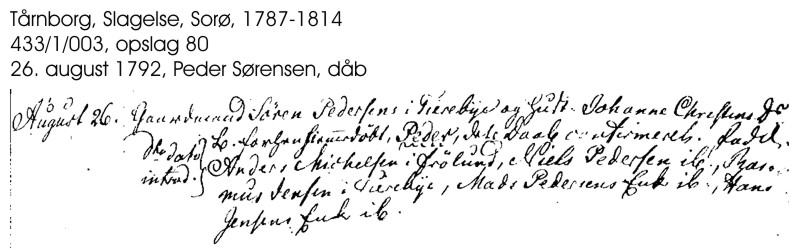 Tårnborg, Slagelse, Sorø, 1787-1814
433/1/003, opslag 80
26. august 1792, Peder Sørensen, dåb
August 26. Gaardmand Søren Pedersens i Tiærebye og Hust. Johanne Christensd
S. for hen hiemmedøbt, Peder, dets Daab confirmeret. fadd.
dato
introd.
Anders Michelsen i Frølund, Niels Pedersen ib., Ras-
mus Jensen i Tiærebye, Mads Pedersens Enk ib., Hans
Jensens Enk ib.